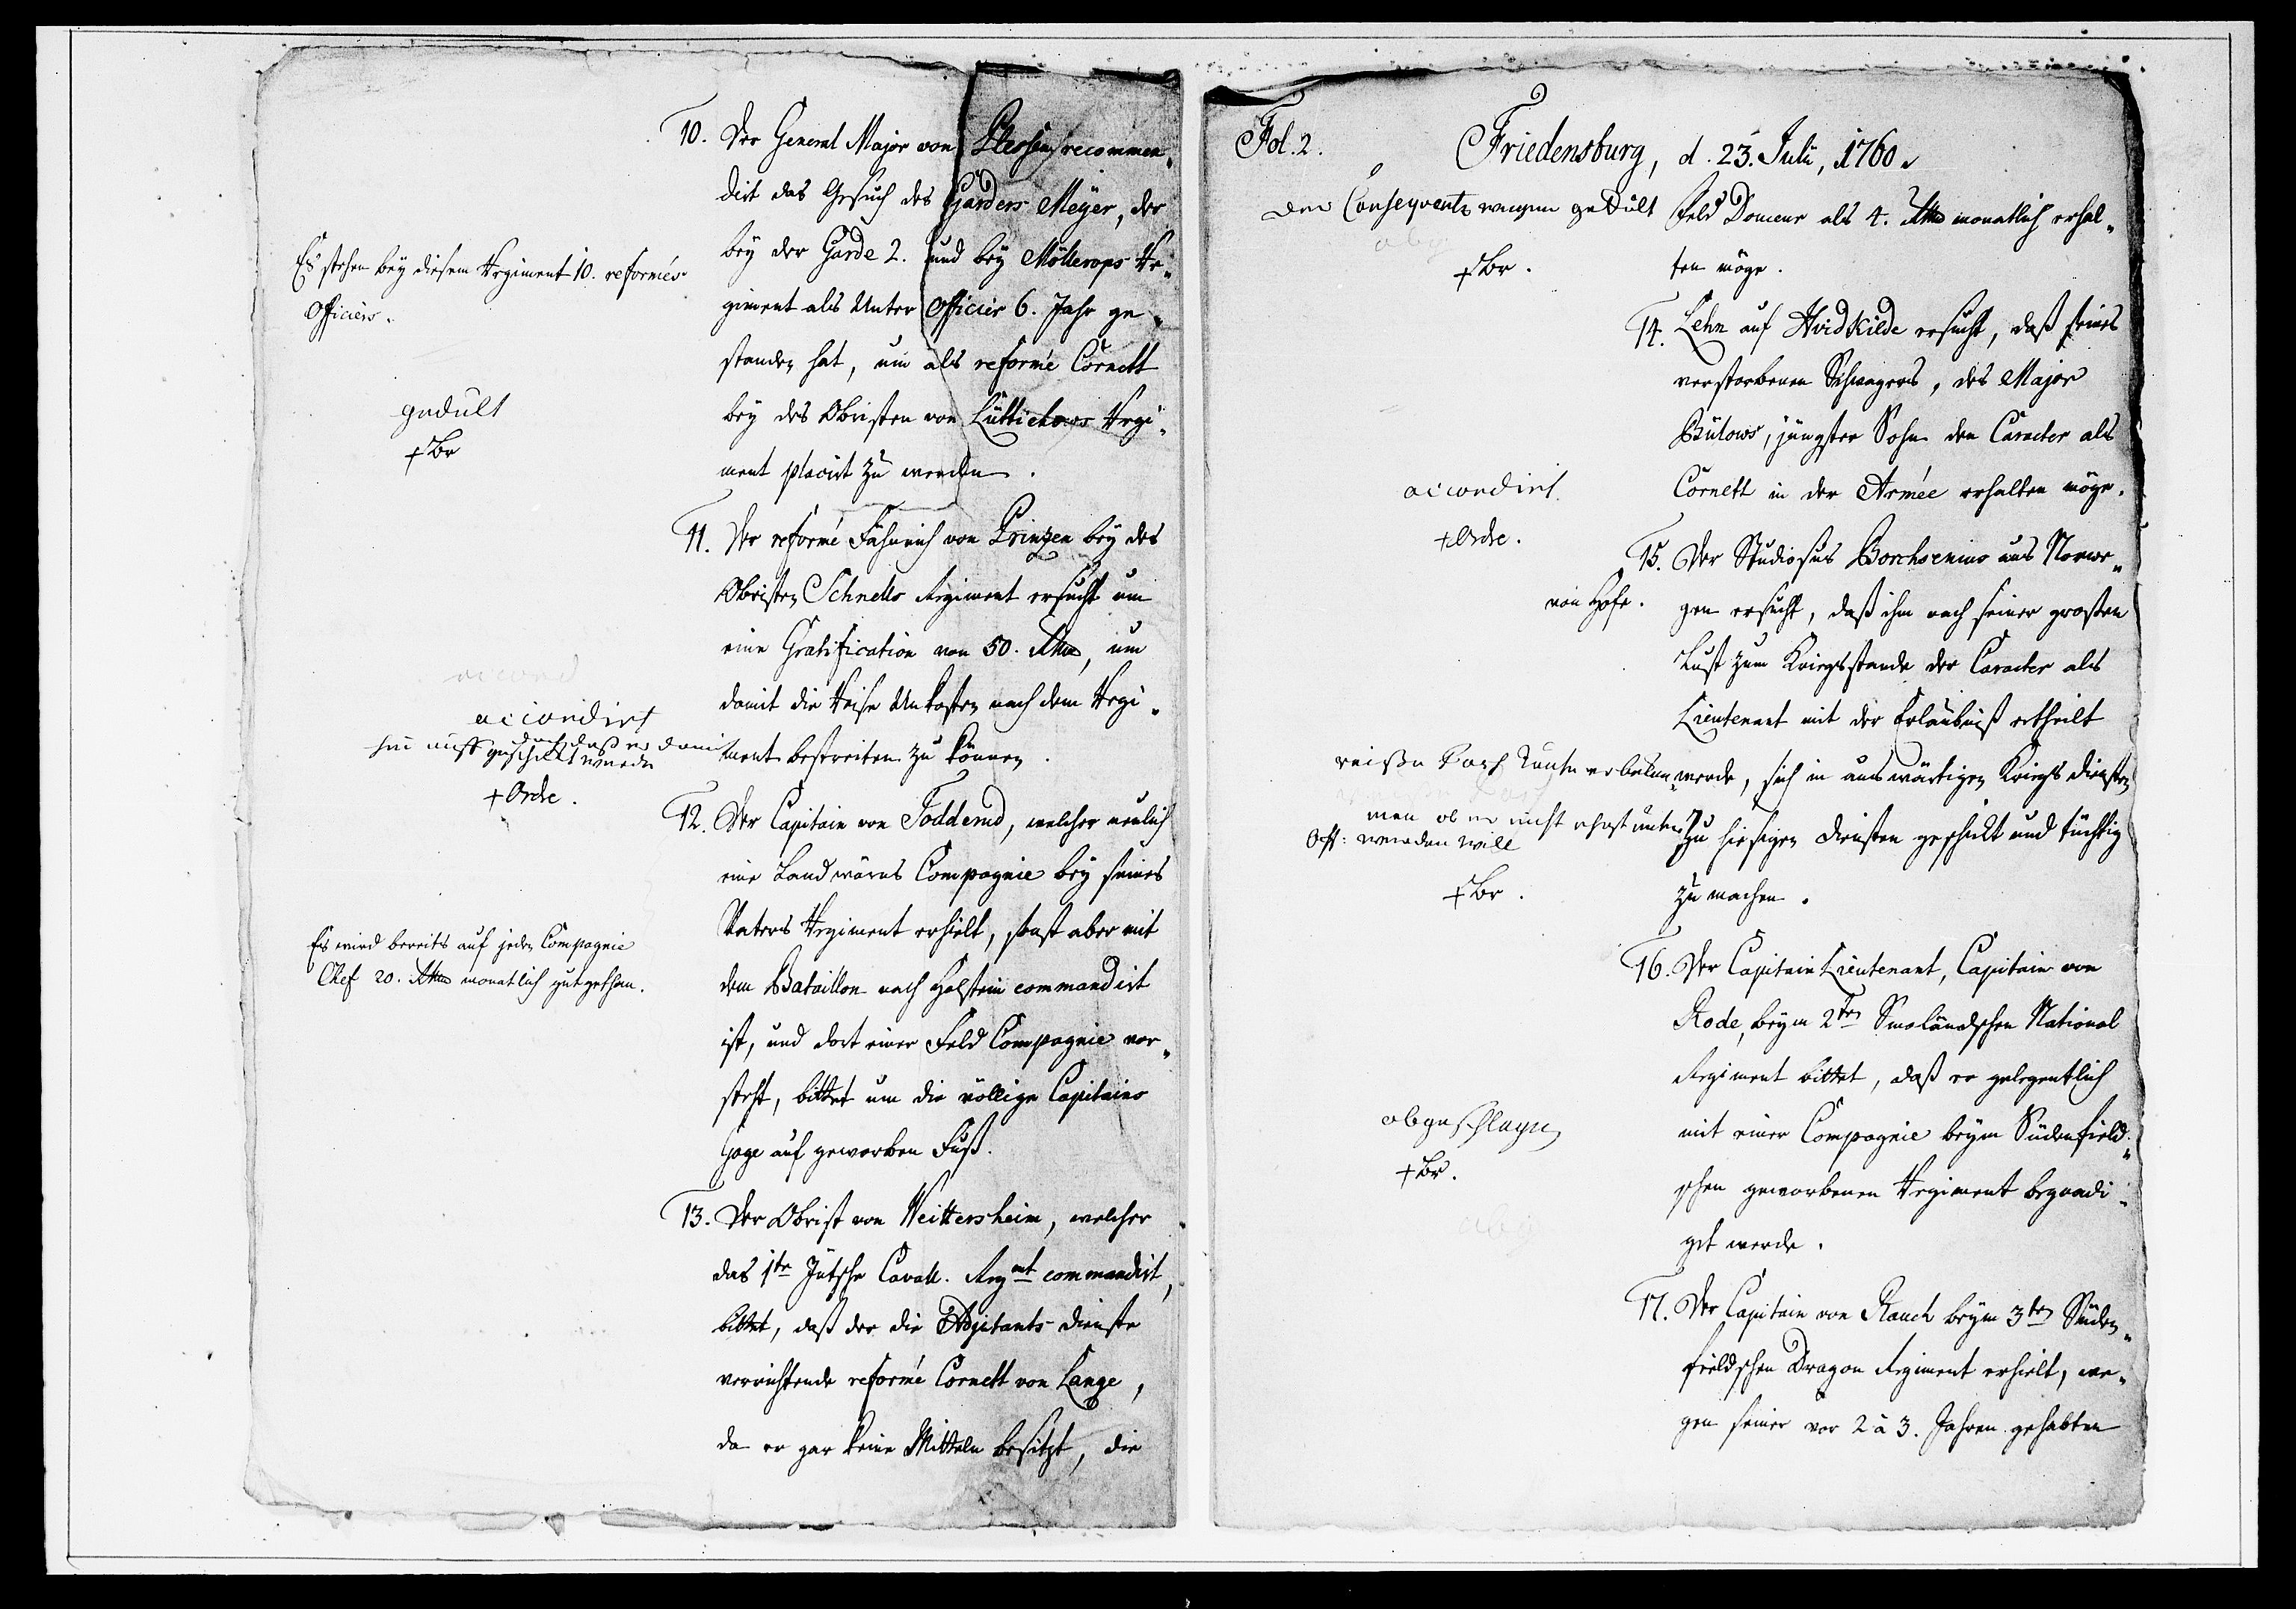 10. Der General Major von Plessen recommen-
dirt das Gesuch des Garders Meyer, der
bey der Garde 2. und bey Möllerops Re-
giment als Unter Officier 6. Jahr ge-
standen hat, um als reformé Cornett
bey des Obristen von Lüttichows Regi-
ment placirt zu werden.
Es stehen bey diesem Regiment 10. reformés
Officiers.
gedult
+ Br
11. Der reformé Fähnrich von Prinzen bey des
Obristen Schnells Regiment ersucht um
eine Gratification von 50. Rthlr, um
damit die Reise Unkosten nach dem Regi-
ment bestreiten zu können.
accord
accordirt
doch daß er damit
hin auff geschickt werde
+ Ordre.
12. Der Capitain von Todderud, welcher neulich
eine Landwärns Compagnie bey seines
Vaters Regiment erhielt, sonst aber mit
dem Bataillon nach Holstein commandirt
ist, und dort einer Feld Compagnie vor-
steht, bittet um die völlige Capitains
Gage auf geworben Fuß.
Es wird bereits auf jeden Compagnie
Chef 20. Rthlr monatlich gut gethan.
13. Der Obrist von Weittersheim, welcher
das 1te Jütsche Cavall. Regmt commandirt,
bittet, daß der die Adjutants Dienste
verrichtende reformé Cornett von Lange,
da er gar keine Mitteln besitzt, die
Fol. 2.
Friedensburg, d. 23. Julii, 1760.
Der Conseqvents wegen gedult
+ Br.
Feld Douceur als 4. Rthlr monatlich erhal-
ten möge.
14. Lehn auf Hvidkilde ersucht, daß seines
verstorbenen Schwagers, des Major
Bülows, jüngster Sohn den Caracter als
Cornett in der Armée erhalten möge.
accordirt
+ Ordre.
15. Der Studiosus Borchsenius aus Norwe-
gen ersucht, daß ihm nach seiner großen
Lust zum Kriegsstande der Caracter als
Lieutenant mit der Erlaubniß ertheilt
werde, sich in auswärtigen Kriegs Diensten
zu hiesigen Diensten geschickt und tüchtig
zu machen.
von Hofe.
men ob er nicht erst unter
Off: werden will
+ Br.
16. Der Capitain Lieutenant, Capitain von
Rode, beym 2ten Smaaländschen National
Regiment bittet, daß er gelegentlich
mit einer Compagnie beym Südenfield-
schen geworbenen Regiment begnadi-
get werde.
abgeschlagen
+ Br.
17. Der Capitain von Rauch beym 3ten Süden-
fieldschen Dragon Regiment erhielt, we-
gen seiner vor 2 à 3. Jahren gehabten